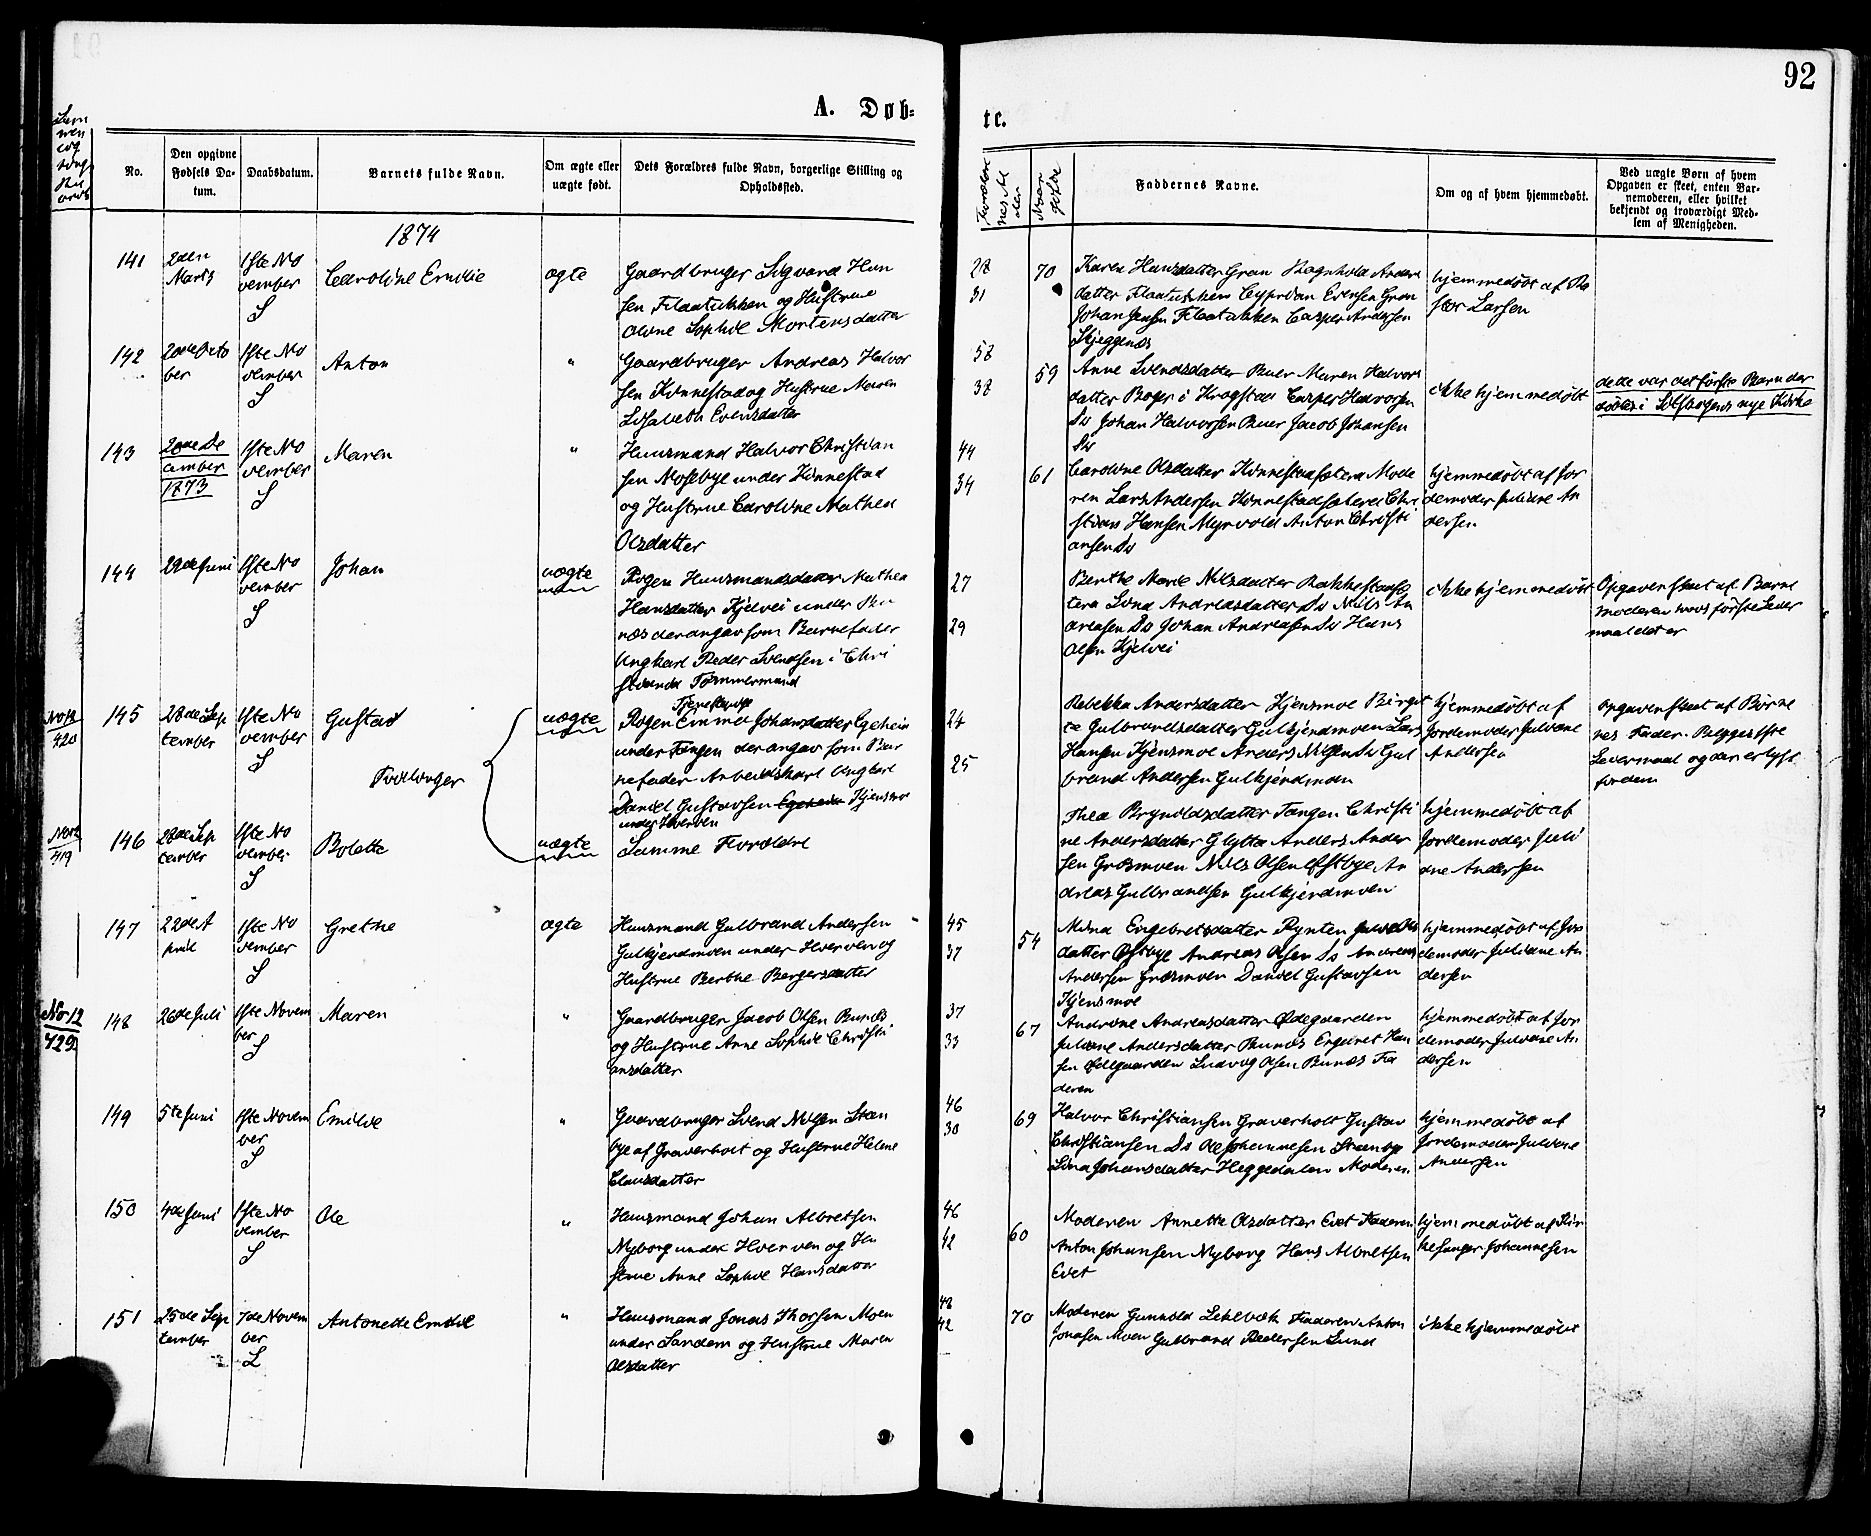 92
A. Døb-
te.
No.
Den opgivne
Fødsels Da-
tum.
Daabsdatum.
Barnets fulde Navn.
Om ægte eller
uægte født.
Dets Forældres fulde Navn, borgerlige Stilling og
Opholdssted.
Faddernes Navne.
Om og af hvem hjemmedøbt.
Ved uægte Børn af hvem
Opgaven er skeet, enten Bar-
nemoderen, eller hvilket
bekjendt og troværdigt Med-
lem af Menigheden.
1874
141
2den
Marts
1ste No
vember
S
Caroline Emilie
ægte
Gaardbruger Sigvard Han
sen Flaatukken og Hustrue
Oline Sophie Mortensdatter
28
31
70
Karen Hansdatter Gran Ragnhild Anders
datter Flaatukken Cyprian Evensen Gran
Johan Jensen Flaatukken Casper Andersen
Skjeggenæs
hjemmedøbt af Pa
stor Larsen
142
2den Octo
ber
1ste No
vember
S
Anton
"
Gaardbruger Andreas Halvor
sen Kinnestad og Hustrue Maren
Lisabeth Evensdatter
58
38
59
Anne Svendsdatter Buer Maren Halvors
datter Boger i Krogstad Casper Halvorsen
Ds Johan Halvorsen Buer Jacob Johansen
Ds
ikke hjemmedøbt
dette var det første Barn der
døbtes i Siebergens nye Kirke
143
20de De
cember
1873
1ste No
vember
S
Maren
"
Huusmand Halvor Christian
sen Mosebye under Kinnestad
og Hustrue Caroline Mathea
Olsdatter
44
34
61
Caroline Olsdatter Kinnestadsætera Mode
ren Lars Andersen Kinnestadsæteren Chri
stian Hansen Myrvold Anton Christi
ansen Ds
hjemmedøbt af Jor
demoder Juliane An
dersen
144
29de Juni
1ste No
vember
S
Johan
uægte
Pigen Huusmandsdatter Mathea
Hansdatter Kjelvei under Bu
næs der angav som Barnefader
Ungkarl Peder Svendsen i Chri
stiania Tømmermand
27
29
Berthe Marie Nilsdatter Rakkestadsæ
tera Lina Andreasdatter Ds Nils An
dreasen Ds Johan Andreasen Ds Hans
Olsen Kjelvei
ikke hjemmedøbt
Opgaven skeet af Barne
moderen hvis første Leier
maal det er
No 12
420
145
28de Sep
tember
1ste No
vember
S
Gustav
Tvillinger
uægte
Tjenestpige
Pigen Emma Johansdatter Egeheim
under Tangen der angav som Bar
nefader Arbeidskarl Ungkarl
Daniel Gustavsen Egeheim Kjensmo
under Hverven
24
25
Rebekka Andersdatter Kjensmoe Birgit
te Gulbrandsdatter Gulkjerdmoen Lars
Hansen Kjensmoe Anders Nilsen Ds Gul
brand Andersen Gulkjerdmoen
hjemmedøbt af
Jordemoder Juliane
Andersen
opgaven skeet af Barne
nes Fader. Begges 1ste
Leiermaal og der er lyst
for dem
No 12
419
146
28de Sep
tember
1ste No
vember
S
Bolette
uægte
Samme Forældre
Thea Brynildsdatter Tangen Christi
ne Andersdatter Glytta Anders Ander
sen Græsmoen Nils Olsen Østbye An
dreas Gulbrandsen Gulkjerdmoen
hjemmedøbt af
Jordemoder Juli
ane Andersen
147
22de A
pril
1ste No
vember
S
Grethe
ægte
Huusmand Gulbrand Andersen
Gulkjerdmoen under Hverven og
Hustrue Berthe Børgersdatter
45
37
54
Mina Engebretsdatter Rynten Julie Ols
datter Østbye Andreas Olsen Ds Andreas
Andersen Græsmoen Daniel Gustavsen
Kjensmoe
hjemmedøbt af Jor
demoder Juliane An
dersen
No 12
429
148
26de Juli
1ste Novem
ber
S
Maren
"
Gaardbruger Jacob Olsen Bunæs
og Hustrue Anne Sophie Christi
ansdatter
37
33
67
Andrine Andreasdatter Ødegaarden
Juliane Andersdatter Bunæs Engebret Han
sen Ødegaarden Ludvig Olsen Bunæs Fa
deren
hjemmedøbt af Jor
demoder Juliane An
dersen
149
5te Juni
1ste Novem
ber
S
Emilie
"
Gaardbruger Svend Nilsen Sten
bye af Graverholt og Hustrue Helene
Clausdatter
46
30
69
Halvor Christiansen Graverholt Gustav
Christiansen Ds Ole Johannesen Stenby
Lina Johansdatter Heggedalen Moderen
hjemmedøbt af
Jordemoder Juliane
Andersen
150
4de Juni
1ste No
vember
S
Ole
"
Huusmand Johan Albretsen
Nyborg under Hverven og Hu
strue Anne Sophie Hansdatter
46
42
60
Moderen Annette Olsdatter Evet Faderen
Anton Johansen Nyborg Hans Albretsen
Evet
hjemmedøbt af Kir
kesanger Johannesen
151
25de Sep
tember
7de Novem
ber
L
Antonette Emilie
"
Huusmand Jonas Thorsen Moen
under Sandem og Hustrue Maren
Olsdatter
48
42
70
Moderen Gunnild Lekebæk Faderen Anton
Jonasen Moen Gulbrand Pedersen Lund
ikke hjemmedøbt